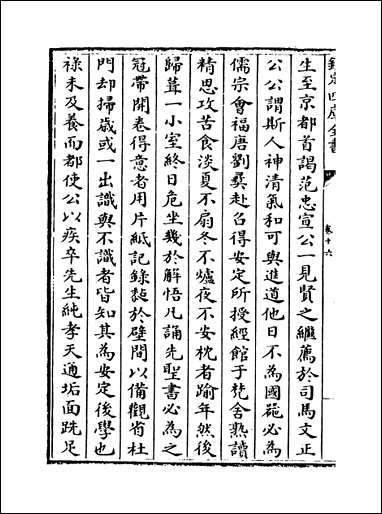 欽定四庫全書
卷十六
生至京都首謁范忠宣公一見賢之繼薦於司馬文正
公公謂斯人神清氣和可與進道他日不為國器必為
儒宗會福唐劉彛赴召得安定所授經館于梵舍熟讀
精思攻苦食淡夏不扇冬不爐夜不安枕者踰年然後
歸葺一小室終日危坐幾於解悟凡誦先聖書必為之
冠帶開卷得意者用片紙記錄黏於壁間以備觀省杜
門却掃歲或一出識與不識者皆知其為安定後學也
祿未及養而都使公以疾卒先生純孝天通垢面跣足